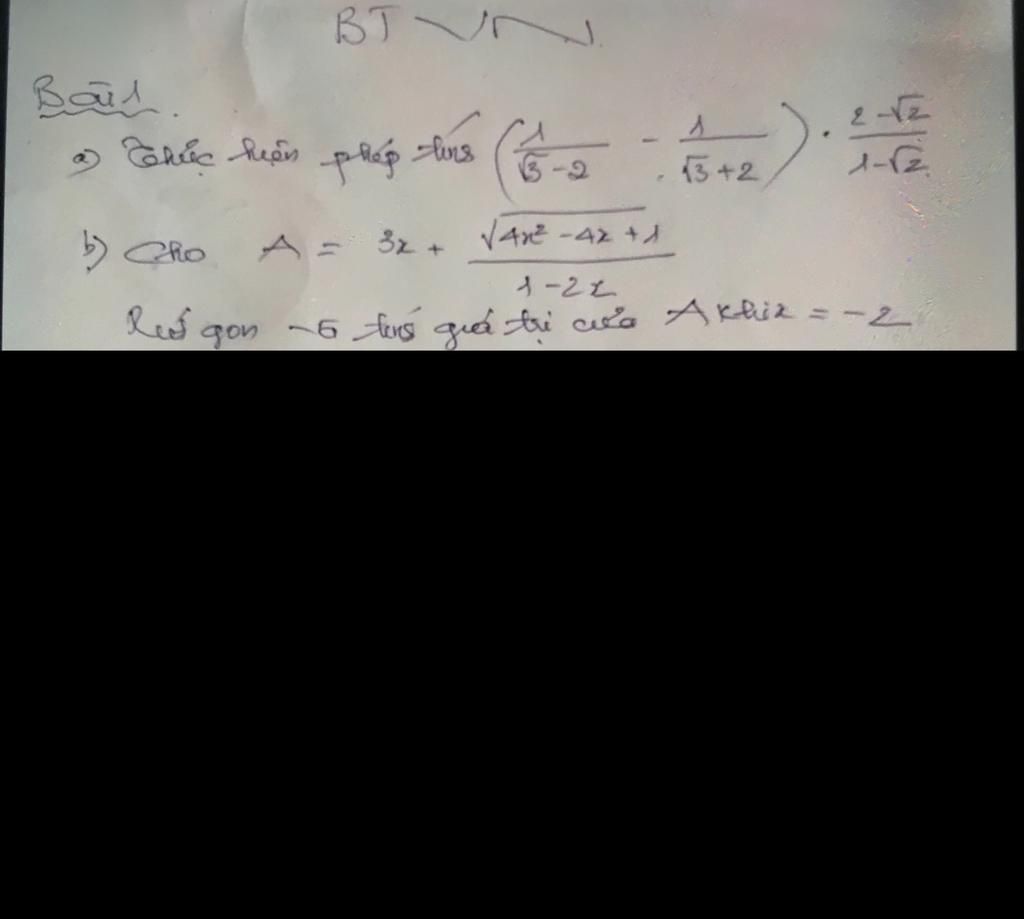 BTVN
Bài 1.
a) Thực hiện phép tính (1/(√3-2) - 1/(√3+2)) . (2-√2)/(1-√2)
b) Cho A = 3x + √(4x² - 4x + 1)/(1-2x)
Rút gọn tính giá trị của A khi x = -2